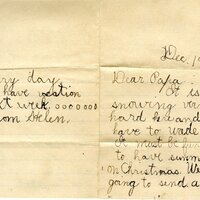 ry day.
have vecation
t week ooooooo
om Helen.
Dec. 19
Dear Papa:
It is
snowing ver
hard here and
have to wade
It must be
to have summ
on Christmas. We
going to send a